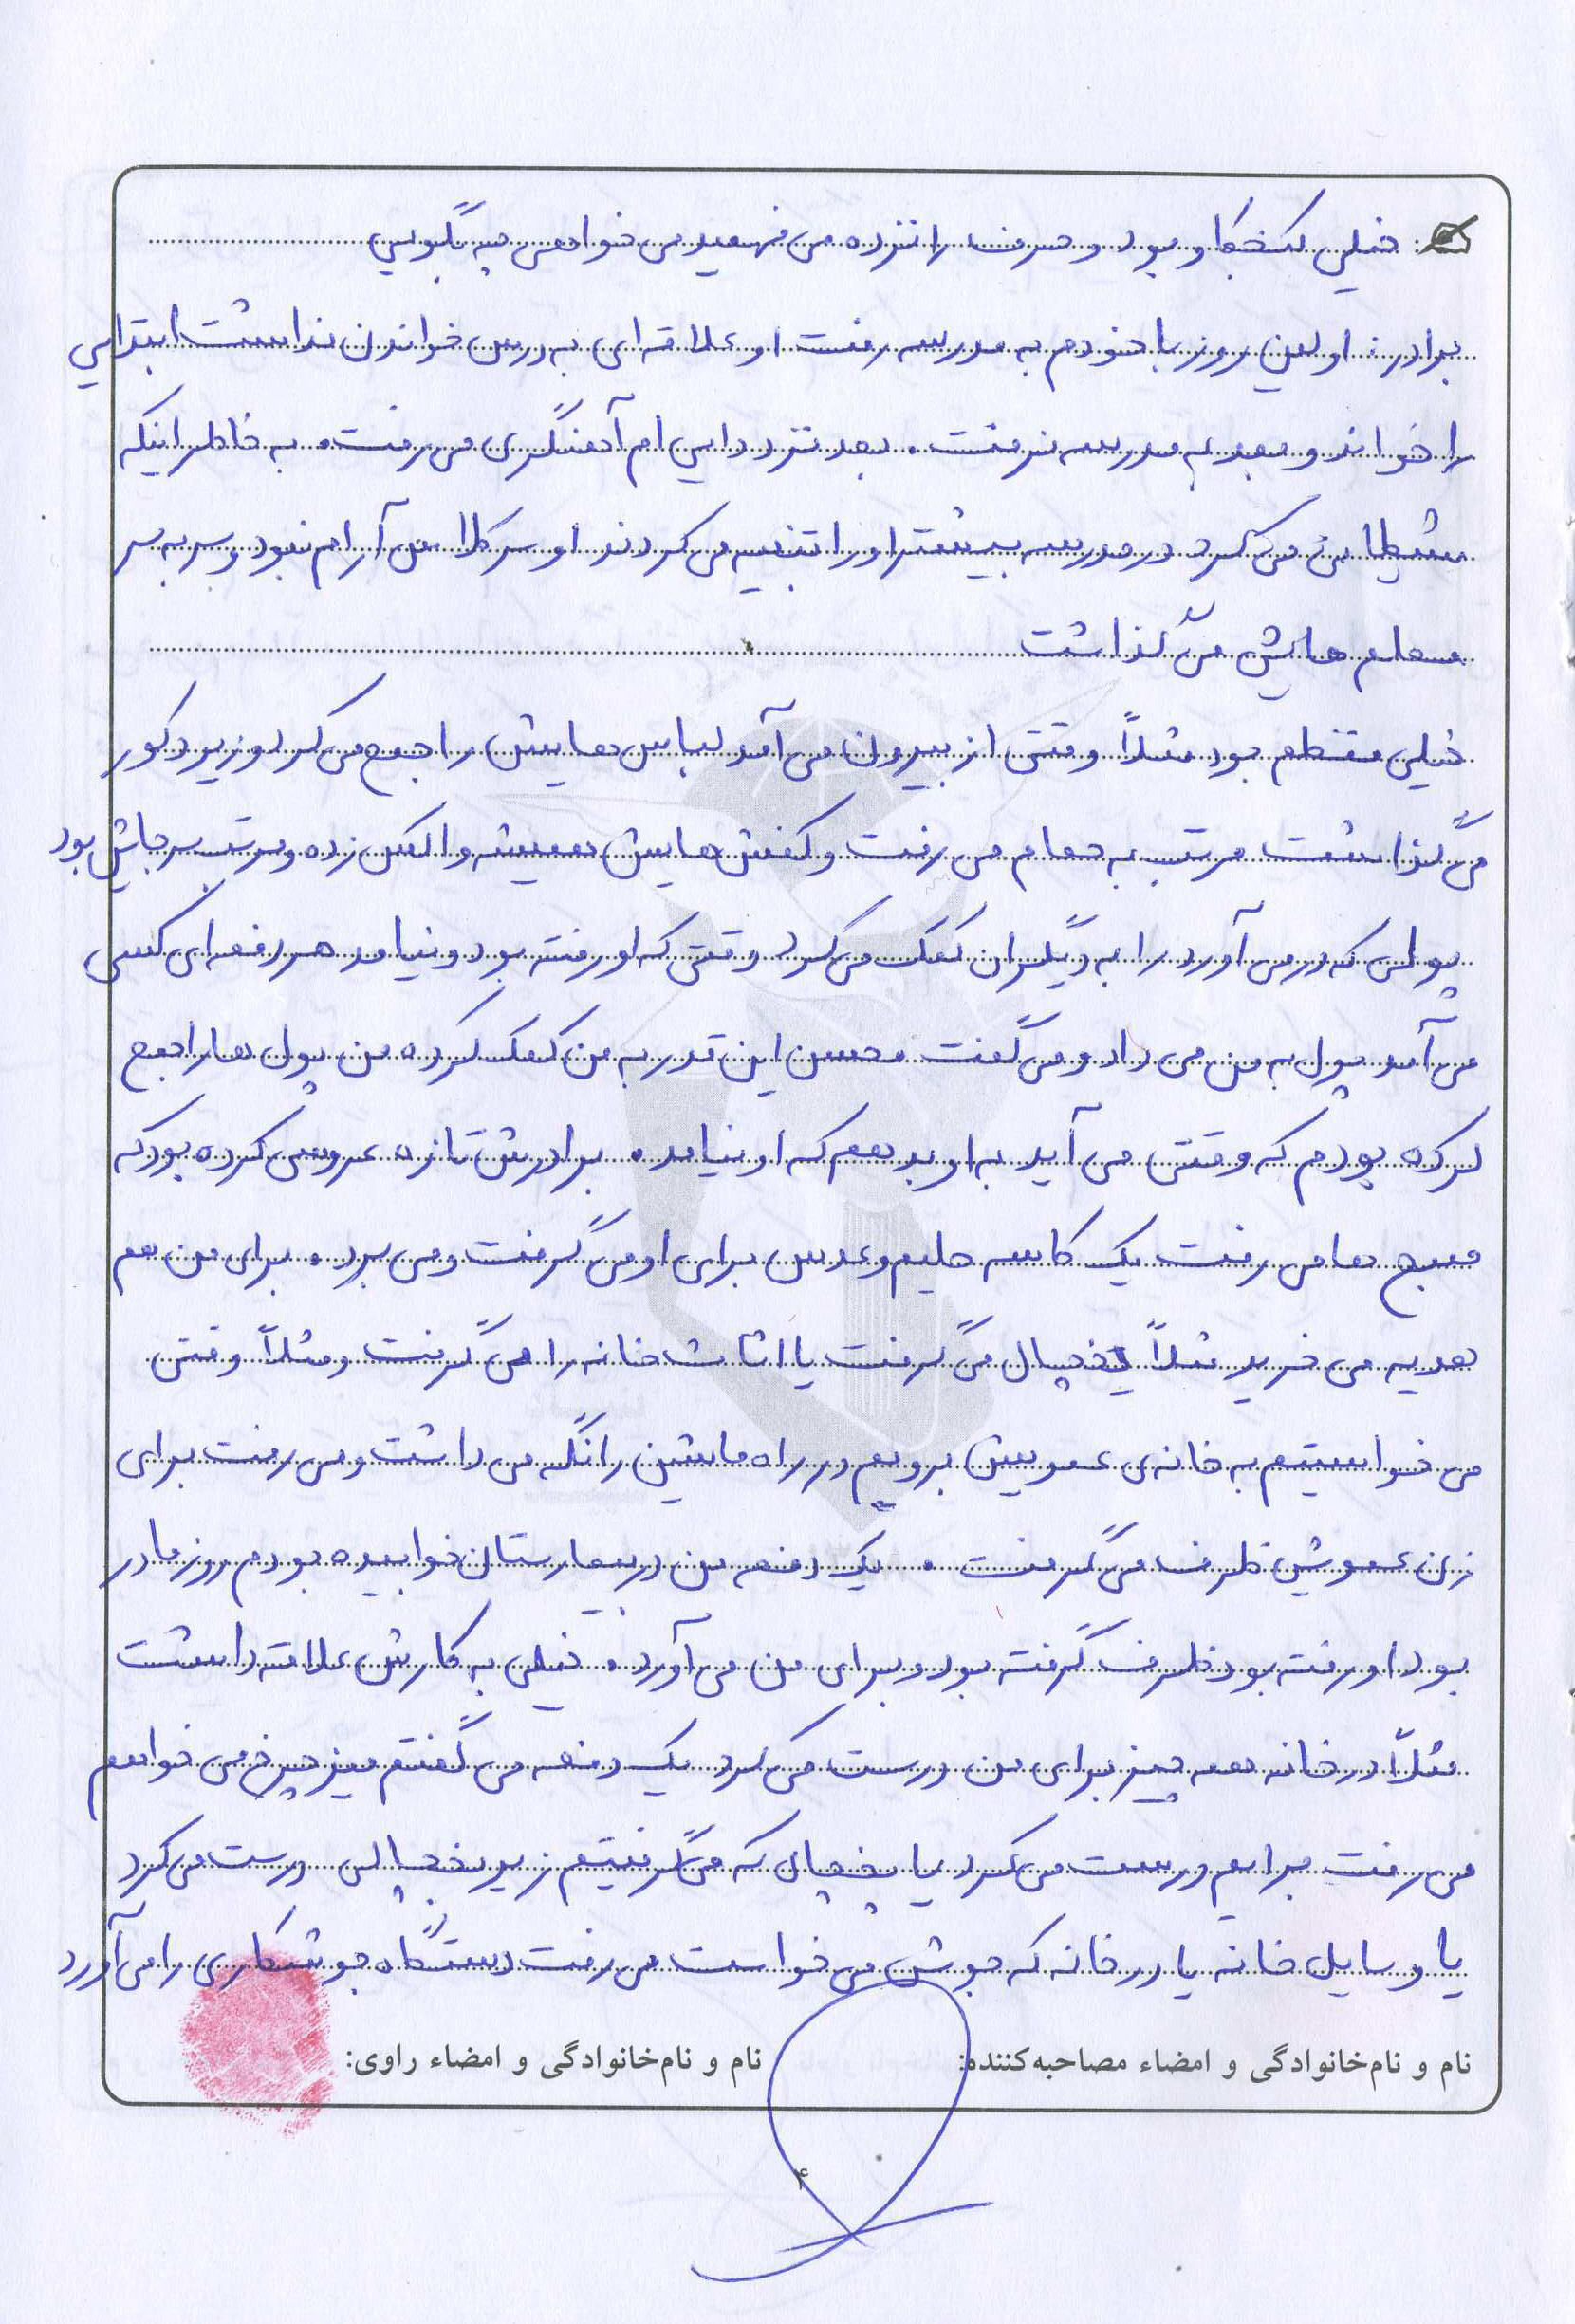 خیلی کنجکاو بود و حرف را نزده می فهمید می خواهی چه بگویی
برادر: اولین روز با خودم به مدرسه رفت او علاقه ای به درس خواندن نداشت ابتدایی
را خواند و بعد به مدرسه نرفت. بعد نزد دایی ام آهنگری می رفت. به خاطر اینکه
شیطانی می کرد در مدرسه بیشتر او را تنبیه می کردند او سر کلاس آرام نبود و سر به سر
معلم هایش می گذاشت
خیلی منظم بود مثلاً وقتی از بیرون می آمد لباس هایش را جمع می کرد و زیر دکور
می گذاشت مرتب به حمام می رفت و کفش هایش همیشه واکس زده و مرتب سر جایش بود
پولی که در می آورد را به دیگران کمک می کرد وقتی که او رفته بود و نیامد هر دفعه ای کسی
می آمد پول به من می داد و می گفت محسن این قدر به من کمک کرده من پول ها را جمع
کرده بودم که وقتی می آید به او بدهم که او نیامد. برادرش تازه عروسی کرده بود که
صبح ها می رفت یک کاسه حلیم و عدس برای او می گرفت و می برد. برای من هم
هدیه می خرید مثلاً یخچال می گرفت یا اثاث خانه را می گرفت و مثلاً وقتی
می خواستیم به خانه ی عمویش برویم در راه ماشین را نگه می داشت و می رفت برای
زن عمویش ظرف می گرفت. یک دفعه من در بیمارستان خوابیده بودم روز مادر
بود او رفته بود ظرف گرفته بود و برای من می آورد. خیلی به کارش علاقه داشت
مثلاً در خانه همه چیز برای من درست می کرد یک دفعه می گفتم میز چرخ می خواهم
می رفت برایم درست می کرد یا یخچال که می گرفتیم زیر یخچالی درست می کرد
یا وسایل خانه یا در خانه که جوش می خواست می رفت دستگاه جوشکاری را می آورد
نام و نام‌خانوادگی و امضاء مصاحبه‌کننده: نام و نام‌خانوادگی و امضاء راوی:
۴